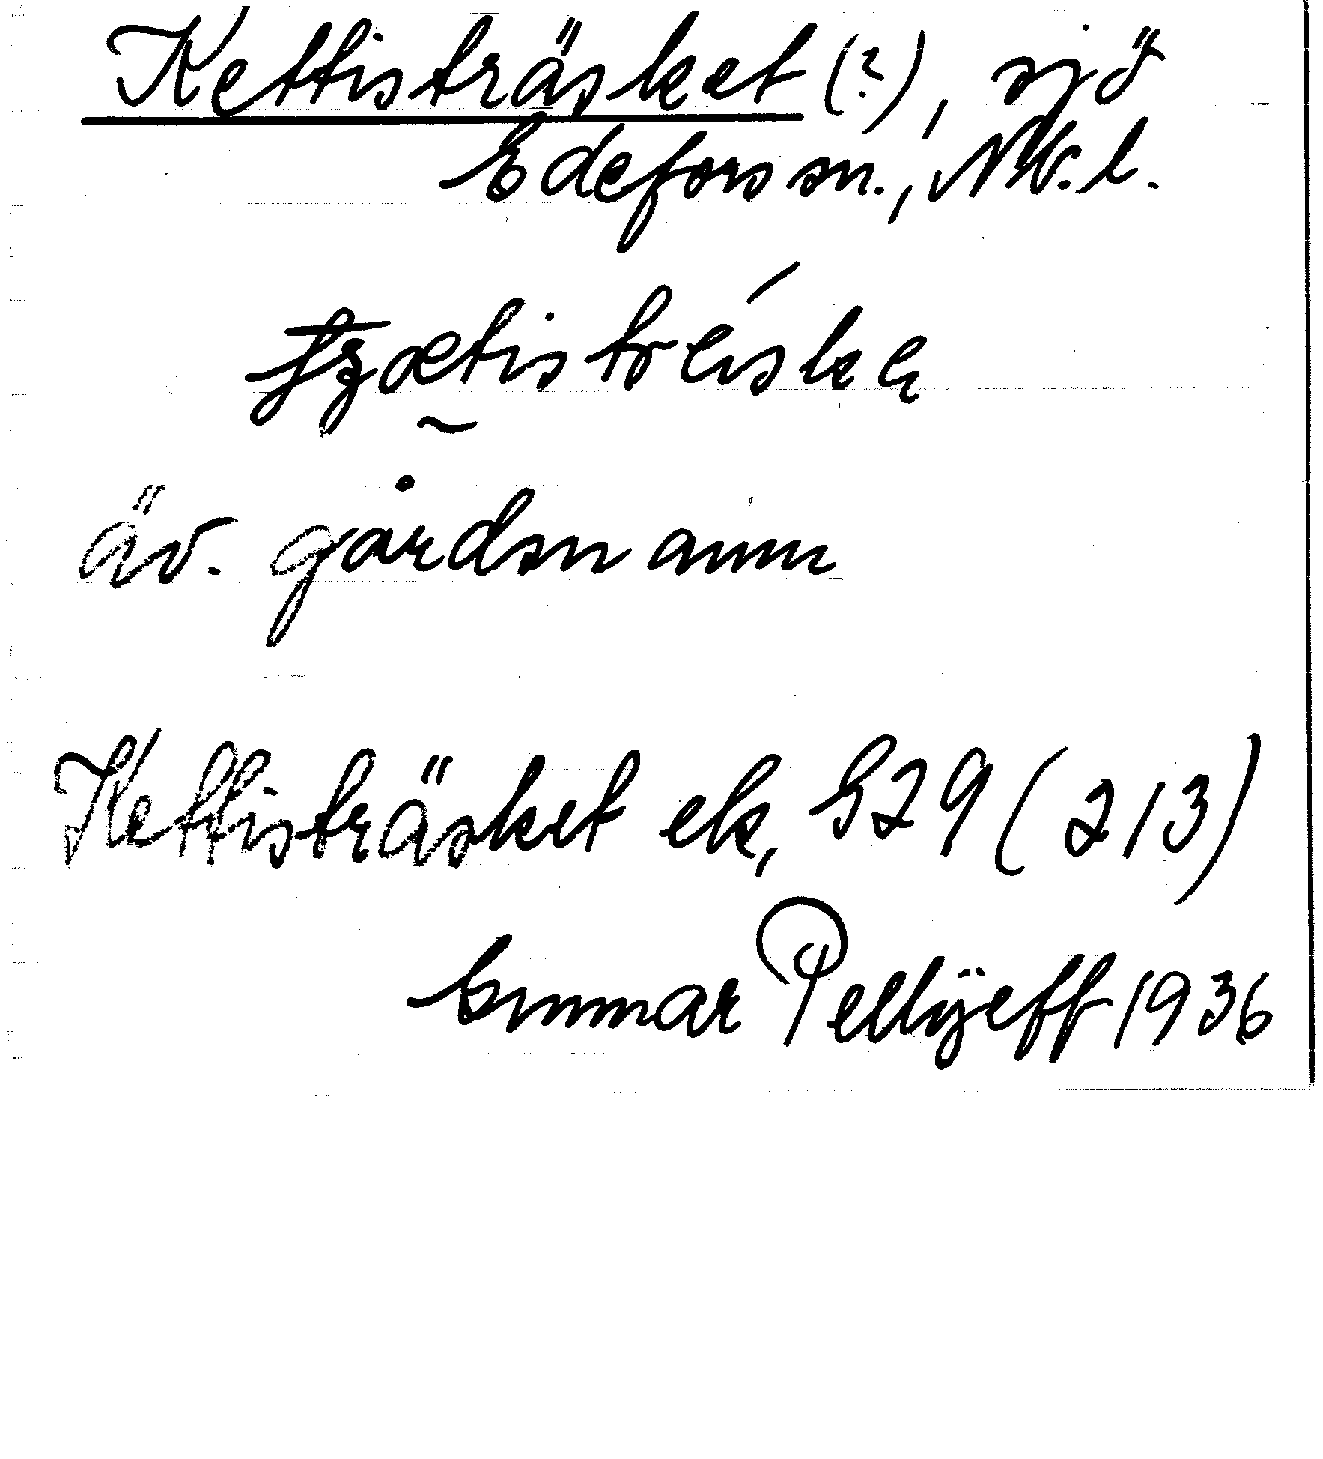 Kettisträsket (?), sjö
Edefors sn., Nb. l.
äv. gårdsnamn
Kettisträsket ek, S29 (213)
Gunnar Pellijeff 1936